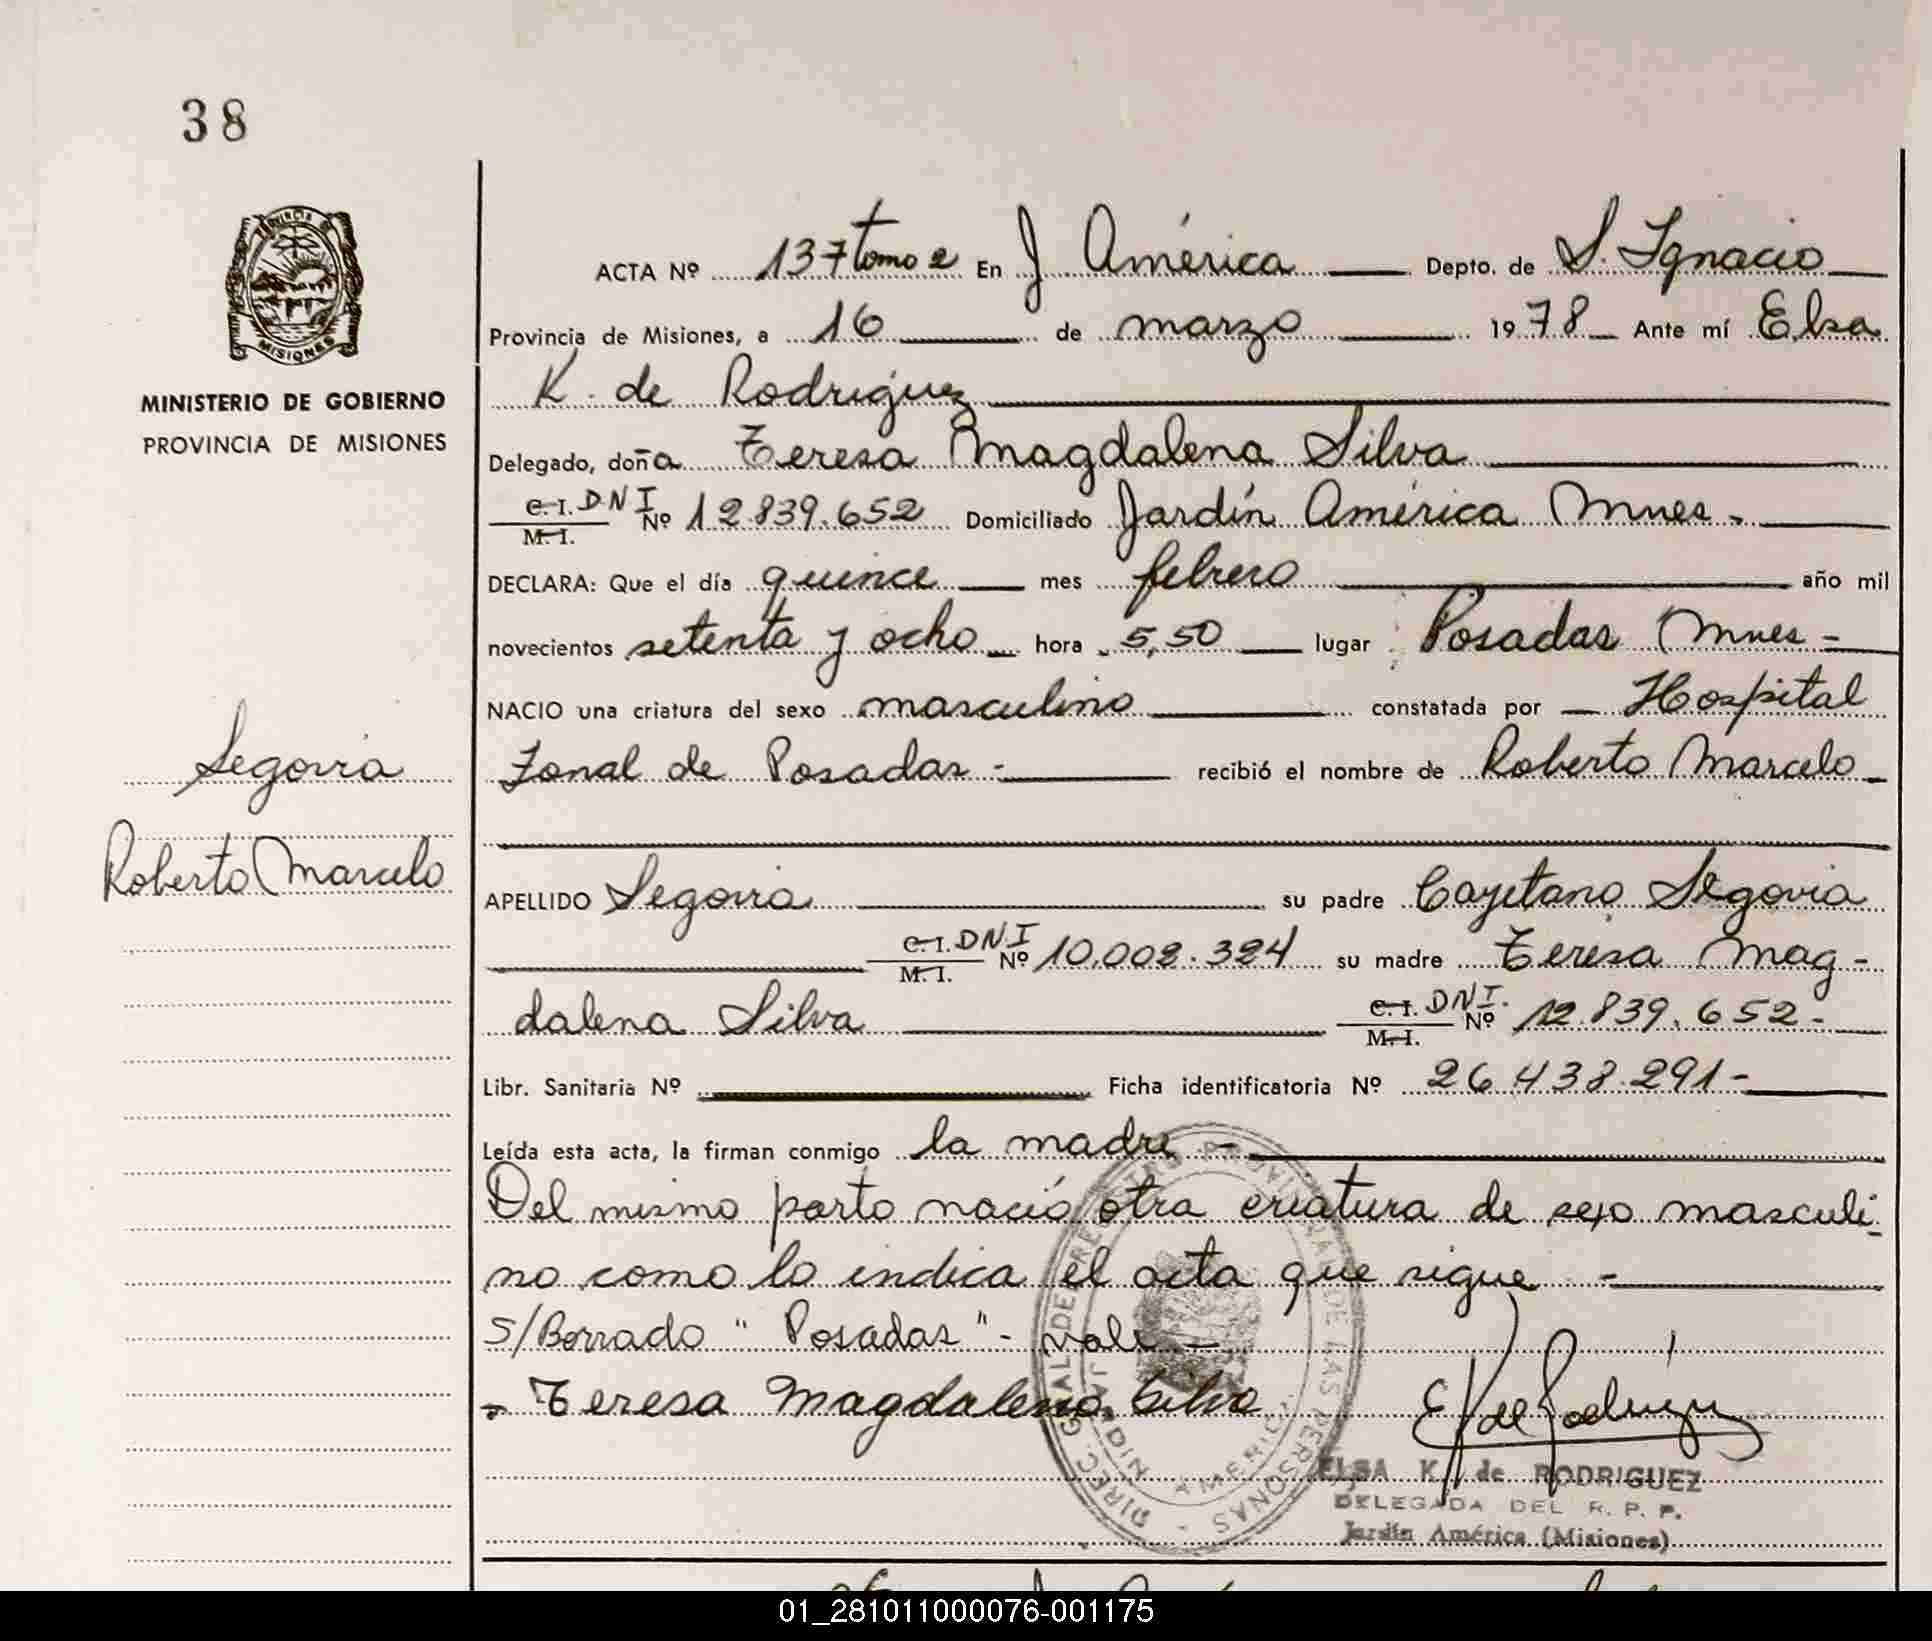 38
PROVINCIA DE
MISIONES
MINISTERIO DE GOBIERNO
PROVINCIA DE MISIONES
Segovia
Roberto Marcelo
ACTA Nº 137 tomo 2 En J América Depto. de S. Ignacio
Provincia de Misiones, a 16 de marzo 1978 Ante mí Elsa
K. de Rodriguez
Delegado, doña Teresa Magdalena Silva
C.I. DNI
M.I. Nº 12.839.652 Domiciliado Jardín América Mnes.
DECLARA: Que el día quince mes febrero año mil
novecientos setenta y ocho hora 5,50 lugar Posadas Mnes-
NACIO una criatura del sexo masculino constatada por Hospital
Zonal de Posadas - recibió el nombre de Roberto Marcelo
APELLIDO Segovia su padre Cayetano Segovia
C.I. DNI
M.I. Nº 10.002.324 su madre Teresa Mag-
dalena Silva C.I. DNI.
M.I. Nº 12.839.652-
Libr. Sanitaria Nº Ficha identificatoria Nº 26.438.291-
Leída esta acta, la firman conmigo la madre -
Del mismo parto nació otra criatura de sexo masculi-
no como lo indica el acta que sigue -
S/Borrado "Posadas" - vale -
Teresa Magdalena Silva
E K de Rodriguez
ELSA K. de RODRIGUEZ
DELEGADA DEL R. P. P.
Jardín América (Misiones)
DIREC. GRAL. DE REGISTRO PROVINCIAL DE LAS PERSONAS
JARDIN AMERICA
01_281011000076-001175